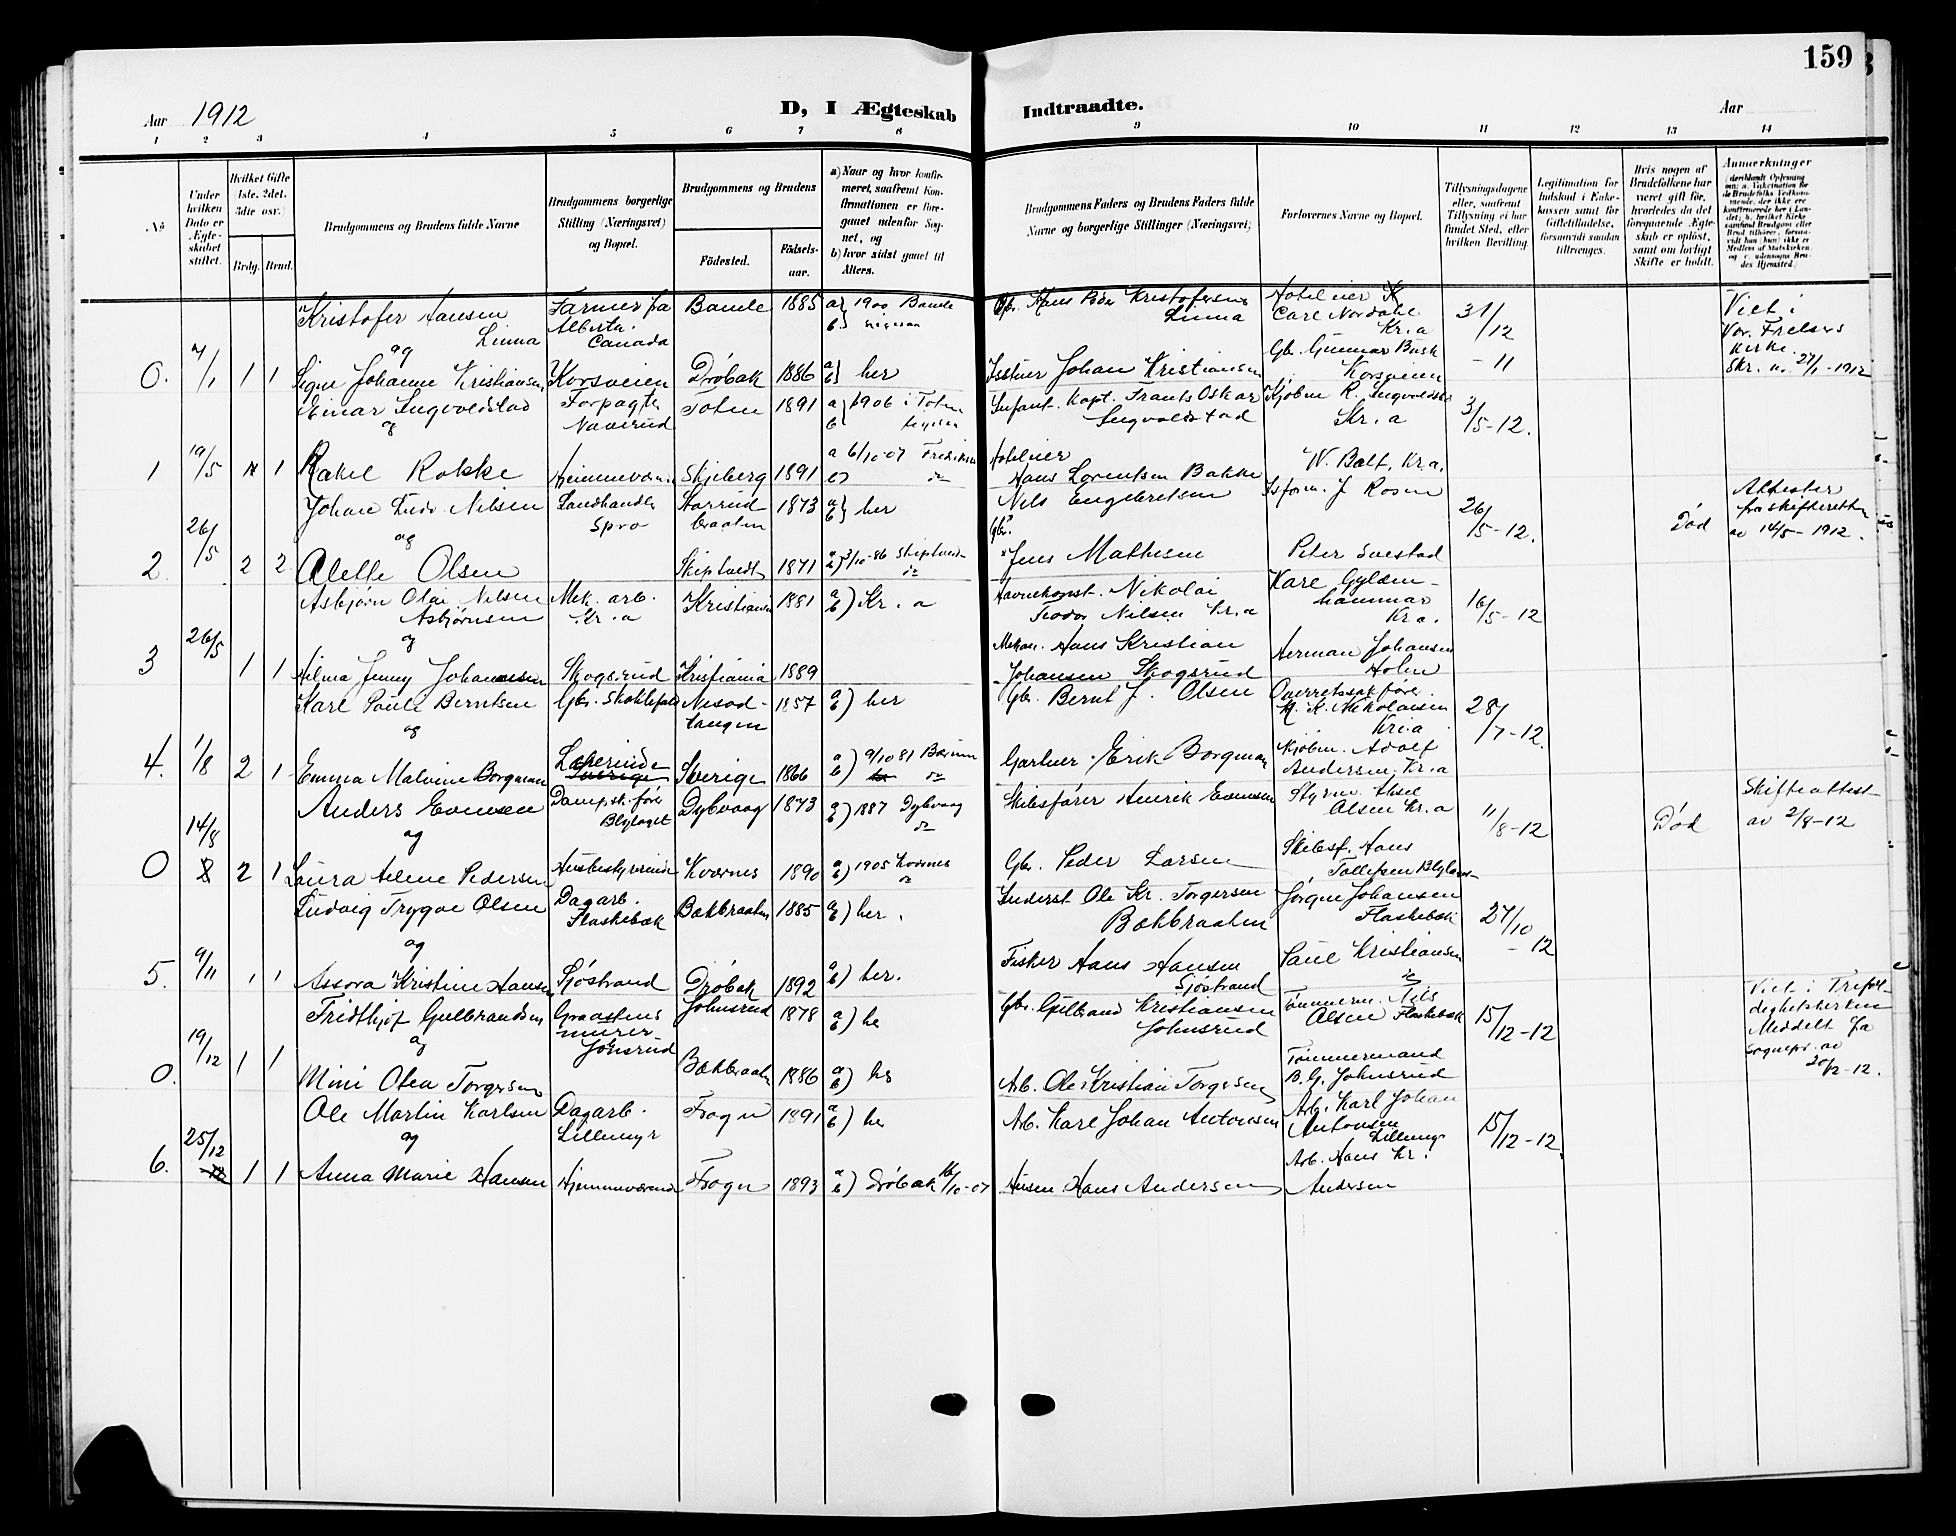 159
Aar 1912
D, I Ægteskab Indtraadte.
Aar
1 2 3 4 5 6 7 8 9 10 11 12 13 14
No
Under hvilken Dato er Ægteskabet stiftet.
Hvilket Gifte 1ste, 2det, 3die osv.)
Brdg. Brud.
Brudgommens og Brudens fulde Navne
Brudgommens borgerlige Stilling (Næringsvei) og Bopæl.
Brudgommens og Brudens
Födested.
Födsels-aar.
a) Naar og hvor konfirmeret, saafremt Konfirmationen er foregaaet udenfor Sognet, og
b) hvor sidst gaaet til Alters.
Brudgommens Faders og Brudens Faders fulde Navne og borgerlige Stillinger (Næringsvei)
Forlovernes Navne og Bopæl.
Tillysningsdagene eller, saafremt Tillysning ei har fundet Sted, efter hvilken Bevilling
Legitimation for Indskud i Enkekassen samt for Giftetilladelse, forsaavidt saadan tiltrænges.
Hvis nogen af Brudefolkene har været gift för, hvorledes da det foregaaende Ægteskab er oplöst, samt om lovligt Skifte er holdt.
Anmærkninger
0. 7/1 1 1
Kristofer Hansen Linna
og
Signe Johanne Kristiansen
Farmer fra Alberta. Canada
Korsveien
Bamle 1885 a) b) 1900 Bamle
Drøbak 1886 a) b) her
Hans Peder Kristofersen Linna
Johan Kristiansen
Hoteleier Carl Nordahl Kr.a
Gb. Gunnar Busk Korsveien
31/12 - 11
Viet i Vor Frelsers Kirke. 27/1-1912
1 19/5 1
Einar Ingvoldstad
og
Rakel Rokke
Forpagter
Toten 1891 a) b) 1906 i Toten
Skjeberg 1891 a 6/10-07
Infant. Kapt. Frants Oskar Ingvoldstad
Hoteleier Hans Lorentsen
Kjøbm. R. Kr.a
W. Kr.a.
3/5-12.
2. 26/5 2 2
Johan Ludv. Nilsen
og
Alette Olsen
Landhandler Spro
1873 a) b) her
Skiptvedt 1871 a) b) 3/10-86 Skiptvedt do
Nils Engebretsen
Gbr. Jens Mathisen
J. Rosen
Peter Svestad
26/5-12.
Død
Attester fra skifteretten av 14/5-1912.
3 26/5 1 1
Asbjørn Olai Nilsen Asbjørnsen
og
Hilma Jenny Johannesen
Mek. arb. Kr.a
Skogsrud
Kristiania 1881 a) b) Kr.a
Kristiania 1889
Nikolai Teodor Nilsen Kr.a
Mekan. Hans Kristian Johansen Skogsrud
Kare Gyldenhammar Kr.a.
Herman Johansen Holm
16/5-12
4. 1/8 2 1
Karl Paul Berntsen
og
Emma Malvine Borgman
Gbr. Skoklefald
Lærerinde
Nesodtangen 1857 a) b) her
Sverige 1866 a) b) 9/10 81 Bærum do
Gb. Bernt J. Olsen
Gartner Erik Borgman
Overretssakfører. Kr.a
Kjøbm. Adolf Andersen. Kr.a
28/7-12.
0 14/8 2 1
Anders Evensen
og
Laura Helene Pedersen
Dampsk.fører Blylaget
Husbestyrerinde
Dybvaag 1873 a) b) 1887 Dybvaag do
Kvernes 1890 a) b) 1905 Kvernes do
Skibsfører Henrik Evensen
Gb. Peder Larsen
Styrm. Olsen Kr.a
Skibsf. Hans Tollefsen Blylaget
11/8-12
Død
Skifteattest av 2/8-12
5. 9/11 1 1
Ludvig Trygve Olsen
og
Assora Kristine Hansen
Dagarb. Flaskebæk
Sjøstrand
Bækbraaten 1885 a) b) her.
Drøbak 1892 a) b) her.
Inderst Ole Kr. Torgersen Bækbraaten
Fisker Hans Hansen Sjøstrand
Jørgen Johansen Flaskebæk
Paul Kristiansen do
27/10 - 12
0. 19/12 1 1
Fridthjof Gulbrandsen
og
Mini Olea Torgersen
Graastensmurer Johnsrud
Johnsrud 1878 a) b) her
Bækbraaten 1886 a) b) her
Gbr. Gulbrand Kristiansen Johnsrud
Arb. Ole Kristian Torgersen
Tømmerm. Nils Olsen Flaskebæk
Tømmermand B. G. Johnsrud
15/12-12
Viet i Trefoldighetskirken Meddelt fra sognepr. av 20/12-12.
6. 25/12 1 1
Ole Martin Karlsen
og
Anna Marie Hansen
Dagarb. Lillemyr
Hjemmeværende
Frogn 1891 a) b) her
Frogn 1893 a) b) Drøbak 16/10-07
Arb. Karl Johan Antonsen
Hans Andersen
Arb. Karl Johan Antonsen Lillemyr
Arb. Hans Kr. Andersen
15/12-12.